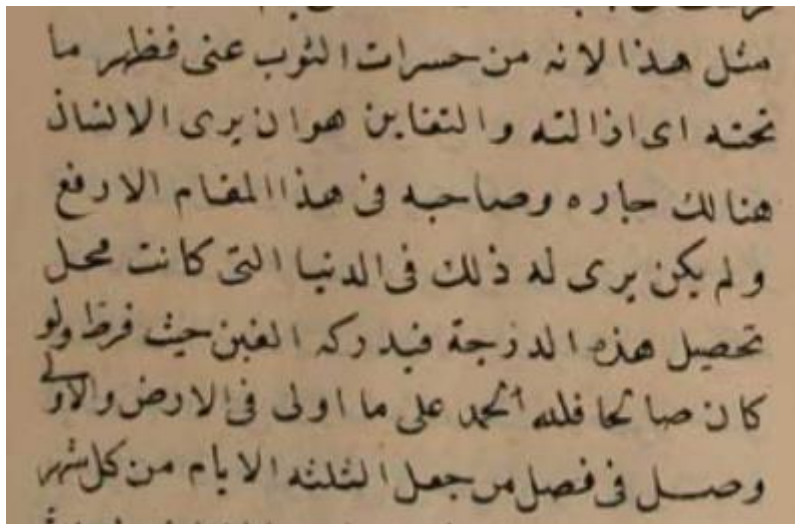 مثل هذا لانه من حسرات الثوب عنى فظهر ما
تحته اى ازالته والتغابن هو ان يرى الانسان
هنالك جاره وصاحبه فى هذا المقام الارفع
ولم يكن يرى له ذلك فى الدنيا التى كانت محل
تحصيل هذه الدرجة فيدركه الغبن حيث فرط ولو
كان صالحا فلله الحمد على ما اولى فى الارض والاولى
وصل فى فصل من جعل الثلثه الايام من كل شهر